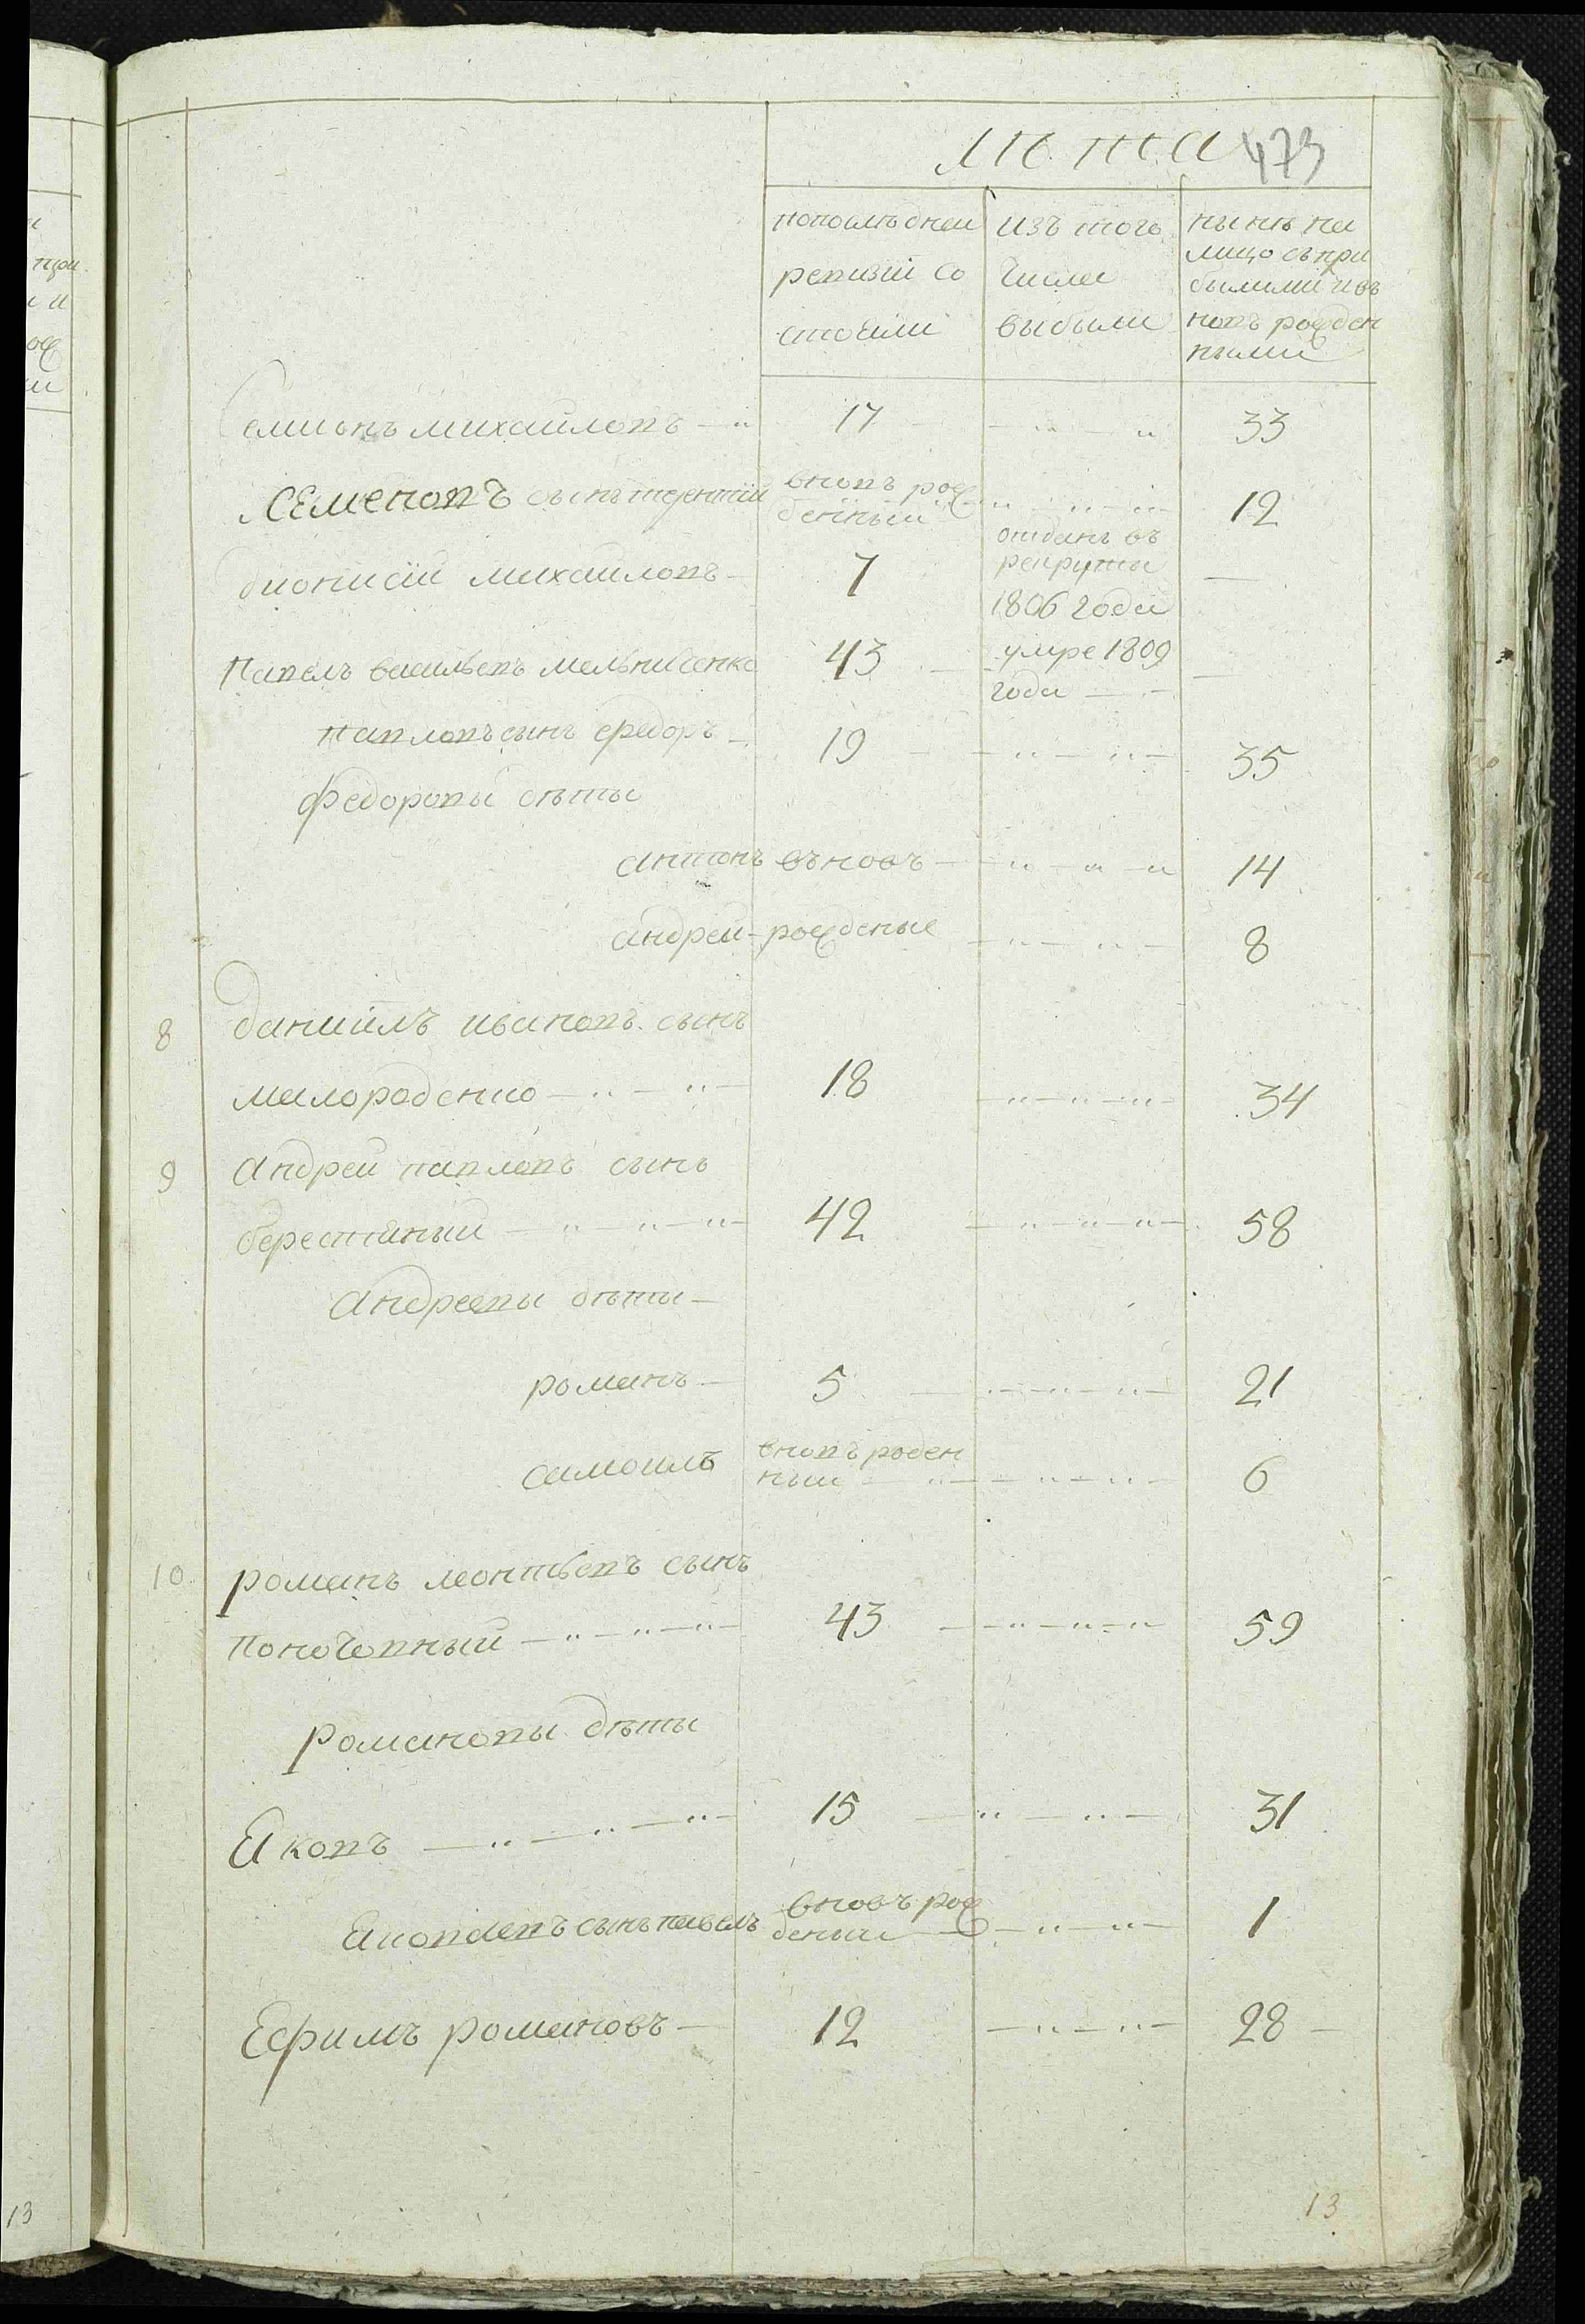 лѣта 473
попослѣднеи ревизiи состояли
изъ того числа выбыли
нынѣ на лицо съ прибылими и въновъ рожденными
Семионъ михаиловъ 17 33
Семеновъ сынъ терентiй вновъ рожденный 12
дионисiй михаиловъ 7 отданъ въ рекруты 1806 года
Павелъ васильевъ мельниченко 43 умре 1809 года
павловъ сынъ федоръ 19 35
федоровы дѣты
антонъ въновъ 14
андрей рожденые 8
8 даниилъ ивановъ сынъ
милороденко 18 34
9 андрей павловъ сынъ
берестяный 42 58
андреевы дѣты
романъ 5 21
самоилъ вновъ роденный 6
10 романъ леонтьевъ сынъ
43 59
романовы дѣты
Яковъ 15 31
Яковлевъ сынъ павелъ вновъ рожденый 1
Ефимъ романовъ 12 28
13
13